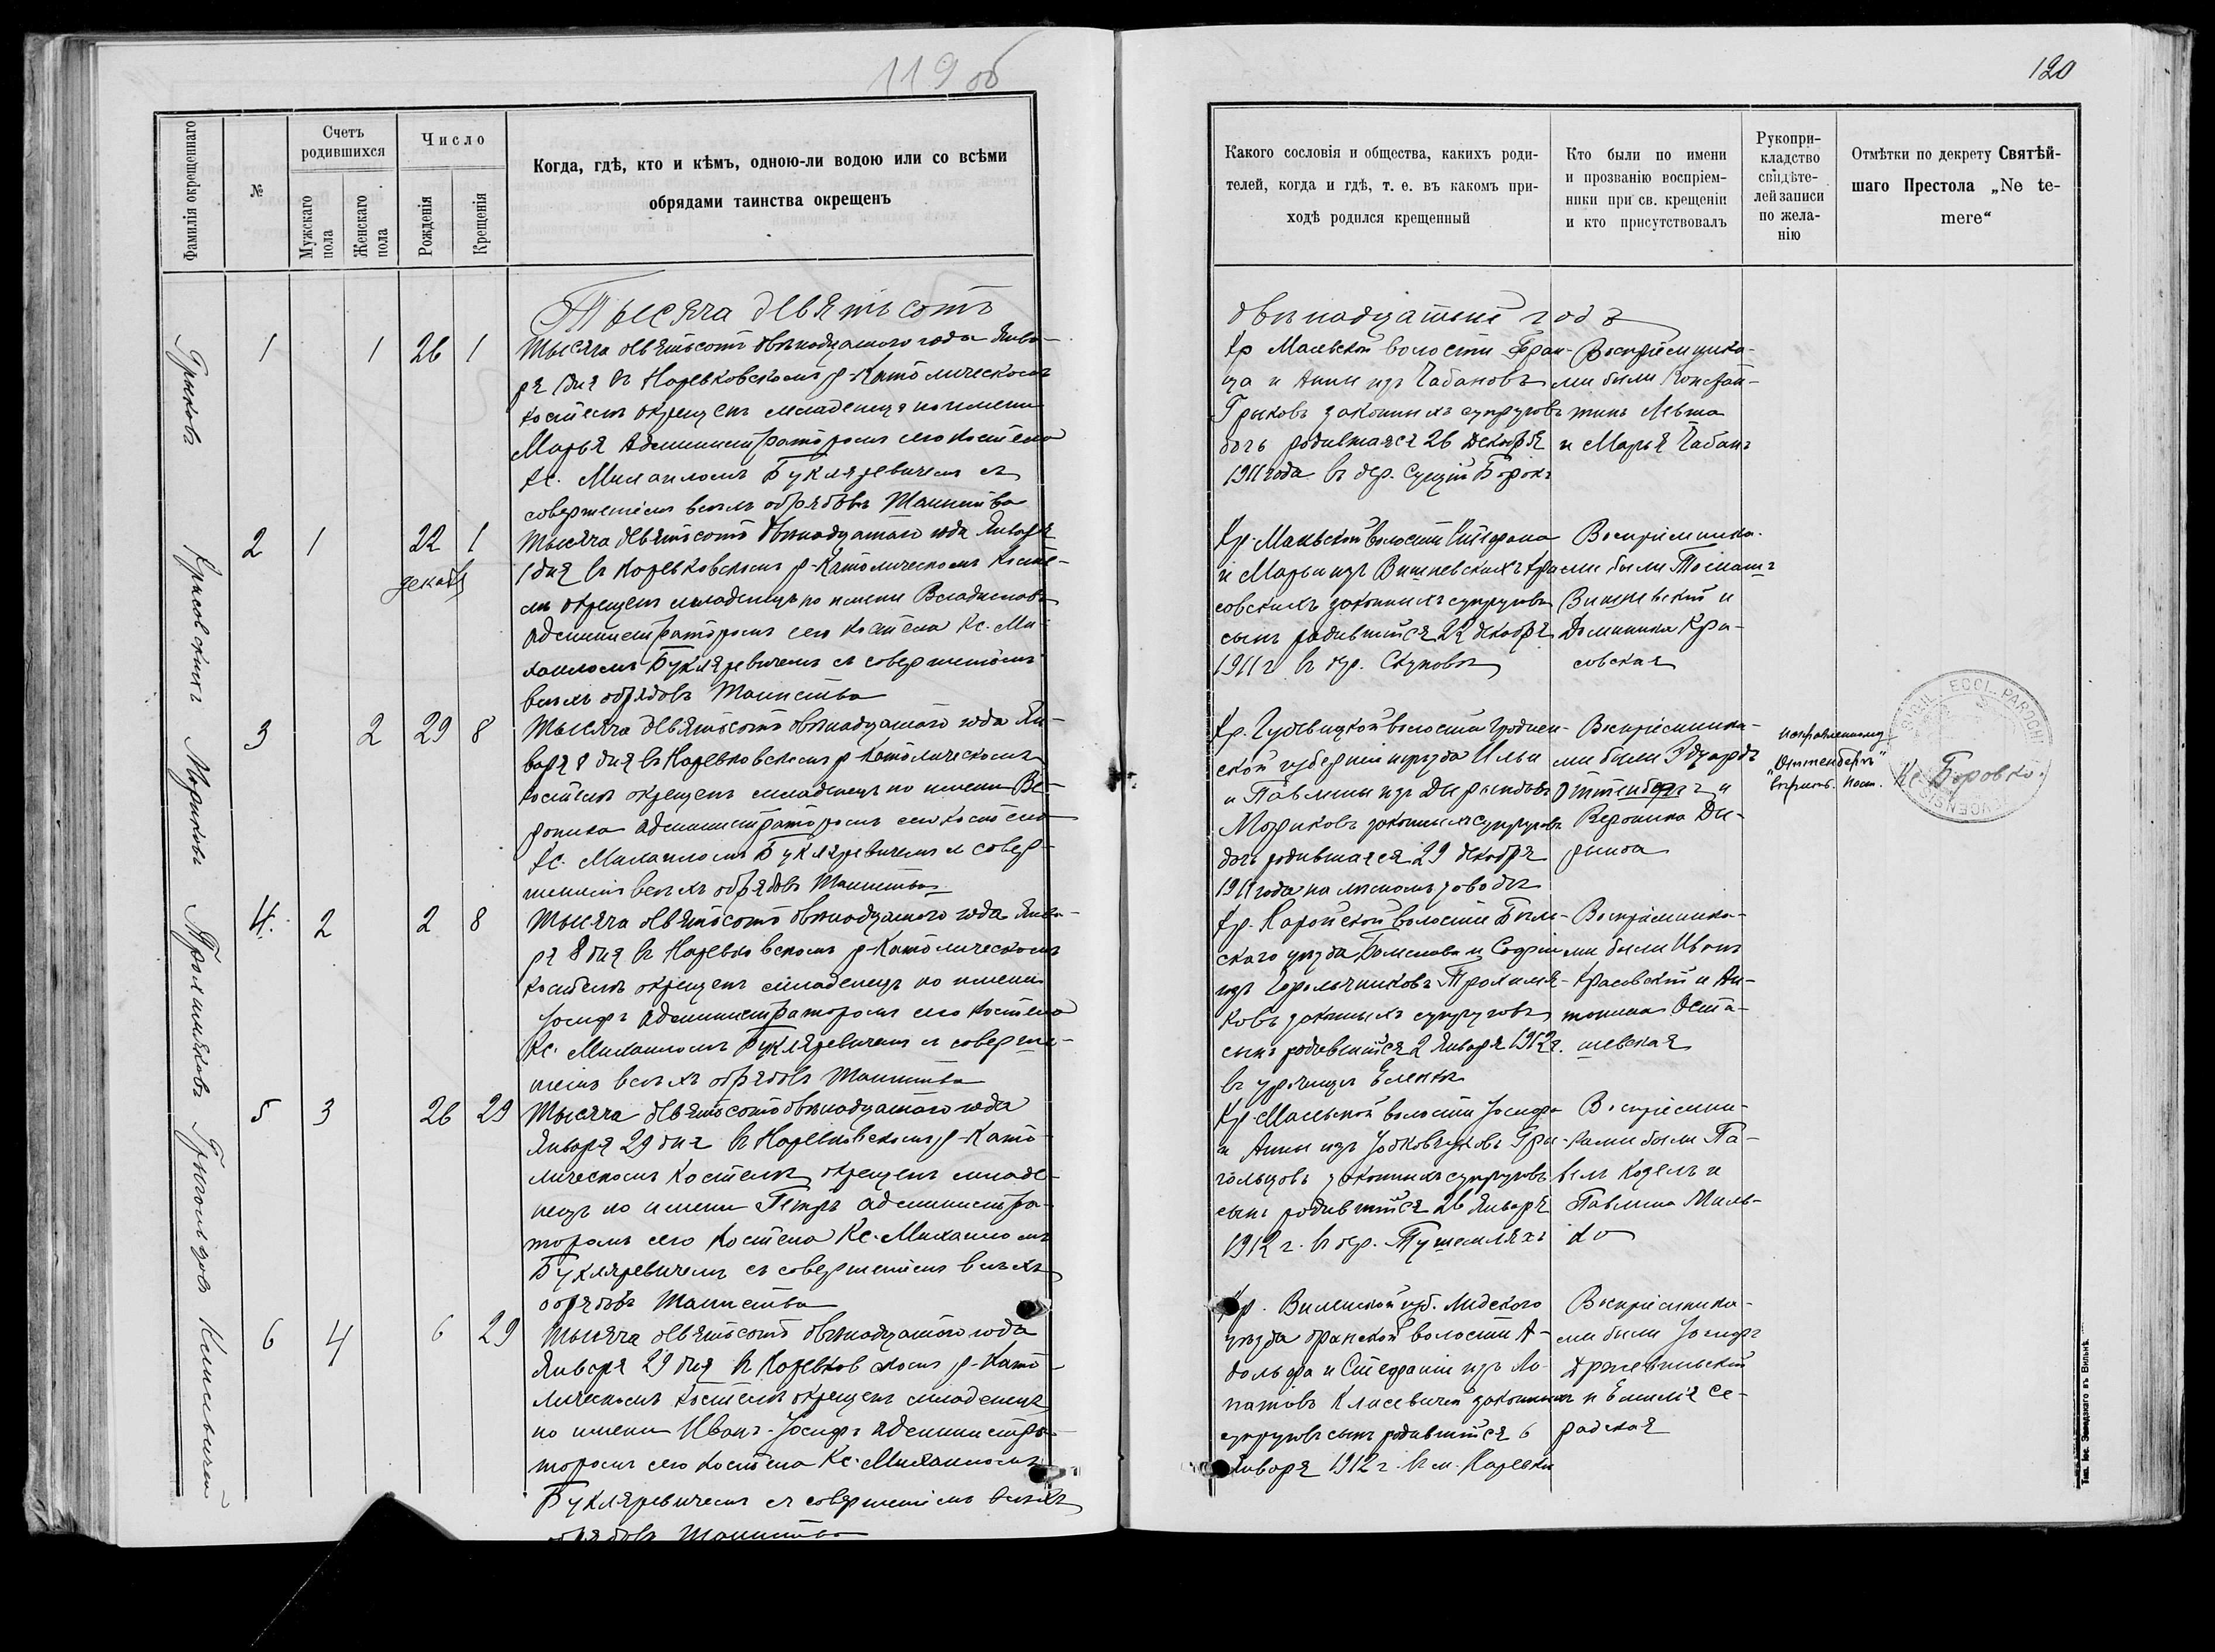 119 об
Фамилія окрещеннаго
№
Счетъ родившихся
Мужскаго пола
Женскаго пола
Число
Рожденія
Крещенія
Когда, гдѣ, кто и кѣмъ, одною-ли водою или со всѣми
обрядами таинства окрещенъ
Тысяча девятьсотъ
Грыковъ
1 1 26 1
Тысяча девятьсотъ двѣнадцатаго года Янва-
ря 1 дня въ Наревковскомъ р-Католическомъ
костелѣ окрещенъ младенецъ по имени
Марья Администраторомъ сего костела
Кс. Михаиломъ Букляревичемъ съ
совершеніемъ всѣхъ обрядовъ Таинства
Красовскихъ
2 1 22 1
декабр
Тысяча девятьсотъ двѣнадцатаго года Января
1 дня въ Наревковскомъ р-Католическомъ косте-
лѣ окрещенъ младенецъ по имени Владиславъ
Администраторомъ сего костела Кс. Ми-
хаиломъ Букляревичемъ съ совершеніемъ
всѣхъ обрядовъ Таинства
3 2 29 8
Тысяча девятьсотъ двѣнадцатаго года Ян-
варя 8 дня въ Наревковскомъ р-Католическомъ
костелѣ окрещенъ младенецъ по имени Ве-
роника Администраторомъ сего костела
Кс. Михаиломъ Букляревичемъ съ совер-
шеніемъ всѣхъ обрядовъ Таинства
4. 2 2 8
Тысяча девятьсотъ двѣнадцатаго года Янва-
ря 8 дня въ Наревковскомъ р-Католическомъ
костелѣ окрещенъ младенецъ по имени
Іосифъ Администраторомъ сего костела
Кс. Михаиломъ Букляревичемъ съ соверше-
ніемъ всѣхъ обрядовъ Таинства
5 3 26 29
Тысяча девятьсотъ двѣнадцатаго года
Января 29 дня въ Наревковскомъ р-Като-
лическомъ костелѣ окрещенъ младе-
нецъ по имени Петръ Администра-
торомъ сего костела Кс. Михаиломъ
Букляревичемъ съ совершеніемъ всѣхъ
обрядовъ Таинства
6 4 6 29
Тысяча девятьсотъ двѣнадцатаго года
Января 29 дня въ Наревковскомъ р-Като-
лическомъ костелѣ окрещенъ младенецъ
по имени Иванъ-Іосифъ Администра-
торомъ сего костела Кс. Михаиломъ
Букляревичемъ съ совершеніемъ всѣхъ
обрядовъ Таинства
120
Какого сословія и общества, какихъ роди-
телей, когда и гдѣ, т. е. въ какомъ при-
ходѣ родился крещенный
Кто были по имени
и прозванію воспріем-
ники при св. крещеніи
и кто присутствовалъ
Рукопри-
кладство
свидѣте-
лей записи
по жела-
нію
Отмѣтки по декрету Святѣй-
шаго Престола „Ne te-
mere“
двѣнадцатый годъ
Кр Масевской волости Фран-
ца и Анны изъ Чабановъ
Грыковъ законныхъ супруговъ
дочь родившаяся 26 декабря
1911 года въ дер.
Воспріемника-
ми были Констан-
тинъ Левша
и Марья Чабанъ
Кр. Масевской волости Стефана
и Марьи изъ Вишневскихъ Кра-
совскихъ законныхъ супруговъ
сынъ родившійся 22 декабря
1911 г въ дер. Скупово
Воспріемника-
ми были Томашъ
Вишневскій и
Доминика Кра-
совская
Кр. волости Гроднен-
ской губерніи и уѣзда Ильи
и Павлины изъ
законныхъ супруговъ
дочь родившаяся 29 декабря
1911 года на лѣсномъ заводѣ
Воспріемника-
ми были Эдуардъ
Оттенбергъ и
Вероника Ды-
исправленному
„Оттенбергъ“
вѣрить.
SIGIL. ECCL. PAROCHI
Кс. Боровко.
Кр. волости Бѣль-
скаго уѣзда и Софіи
изъ
ковъ законныхъ супруговъ
сынъ родившійся 2 Января 1912 г.
въ урочищѣ Еленка
Воспріемника-
ми были Иванъ
Красовскій и Ан-
тонина Оста-
шевская
Кр. Масевской волости Іосифа
и Анны изъ Гри-
гольцовъ законныхъ супруговъ
сынъ родившійся 26 Января
1912 г. въ дер.
Воспріемни-
ками были Па-
велъ Козелъ и
Павлина Миль-
ко
Кр. Виленской губ. Лидского
уѣзда волости А-
дольфа и Стефаніи изъ Ло-
патовъ законныхъ
супруговъ сынъ родившійся 6
Января 1912 г. въ м. Наревкѣ
Воспріемника-
ми были Іосифъ
и Емилія Се-
радская
Тип. Іос. Завадзкаго въ Вильнѣ.